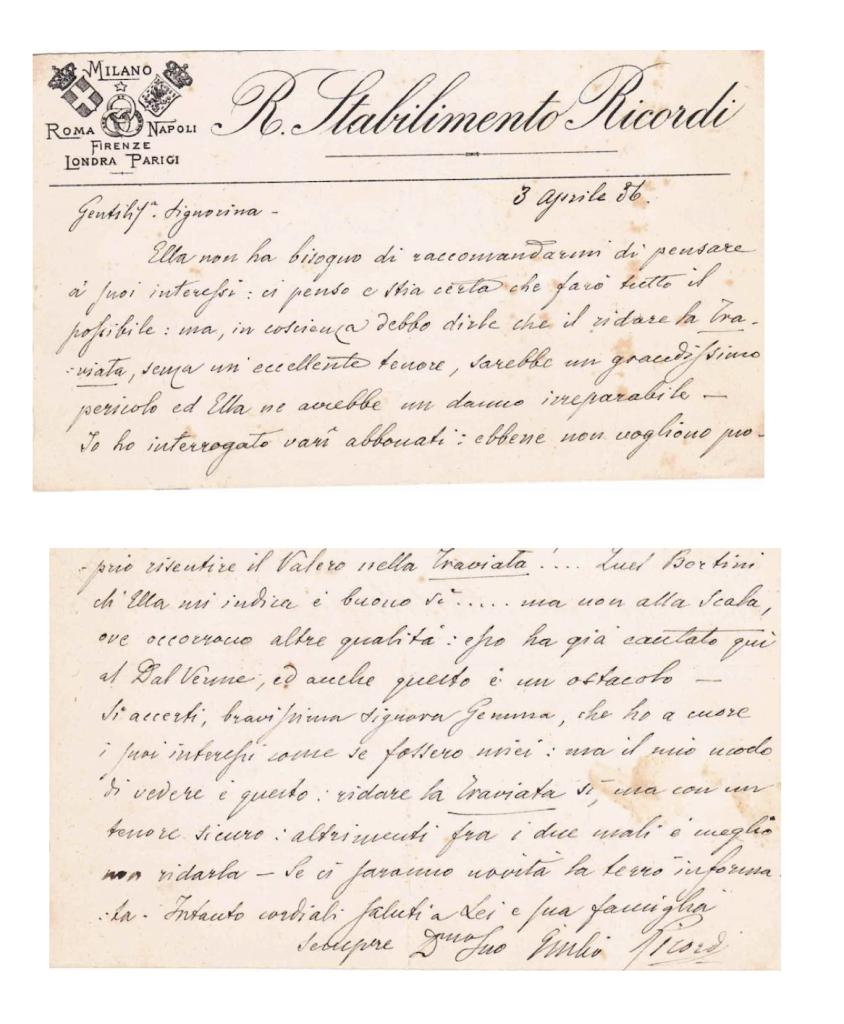 MILANO
ROMA NAPOLI
FIRENZE
LONDRA PARIGI
R. Stabilimento Ricordi
3 Aprile 86.
Gentiliss.ª Signorina -
Ella non ha bisogno di raccomandarmi di pensare
a' suoi interessi: ci penso e stia certa che farò tutto il
possibile: ma, in coscienza debbo dirle che il ridare la Tra-
:viata, senza un' eccellente tenore, sarebbe un grandissimo
pericolo ed Ella ne avrebbe un danno irreparabile —
Io ho interrogato varî abbonati: ebbene non vogliono pro-
-prio risentire il Valero nella Traviata!.... Quel Bertini
ch'Ella mi indica è buono sì..... ma non alla Scala,
ove occorrono altre qualità: esso ha già cantato qui
al Dal Verme, ed anche questo è un ostacolo —
Si accerti, bravissima Signora Gemma, che ho a cuore
i suoi interessi come se fossero miei: ma il mio modo
di vedere è questo: ridare la Traviata sì, ma con un
tenore sicuro: altrimenti fra i due mali è meglio
non ridarla — Se ci saranno novità la terrò informa-
:ta. Intanto cordiali saluti a Lei e sua famiglia
sempre D.mo Suo Giulio Ricordi